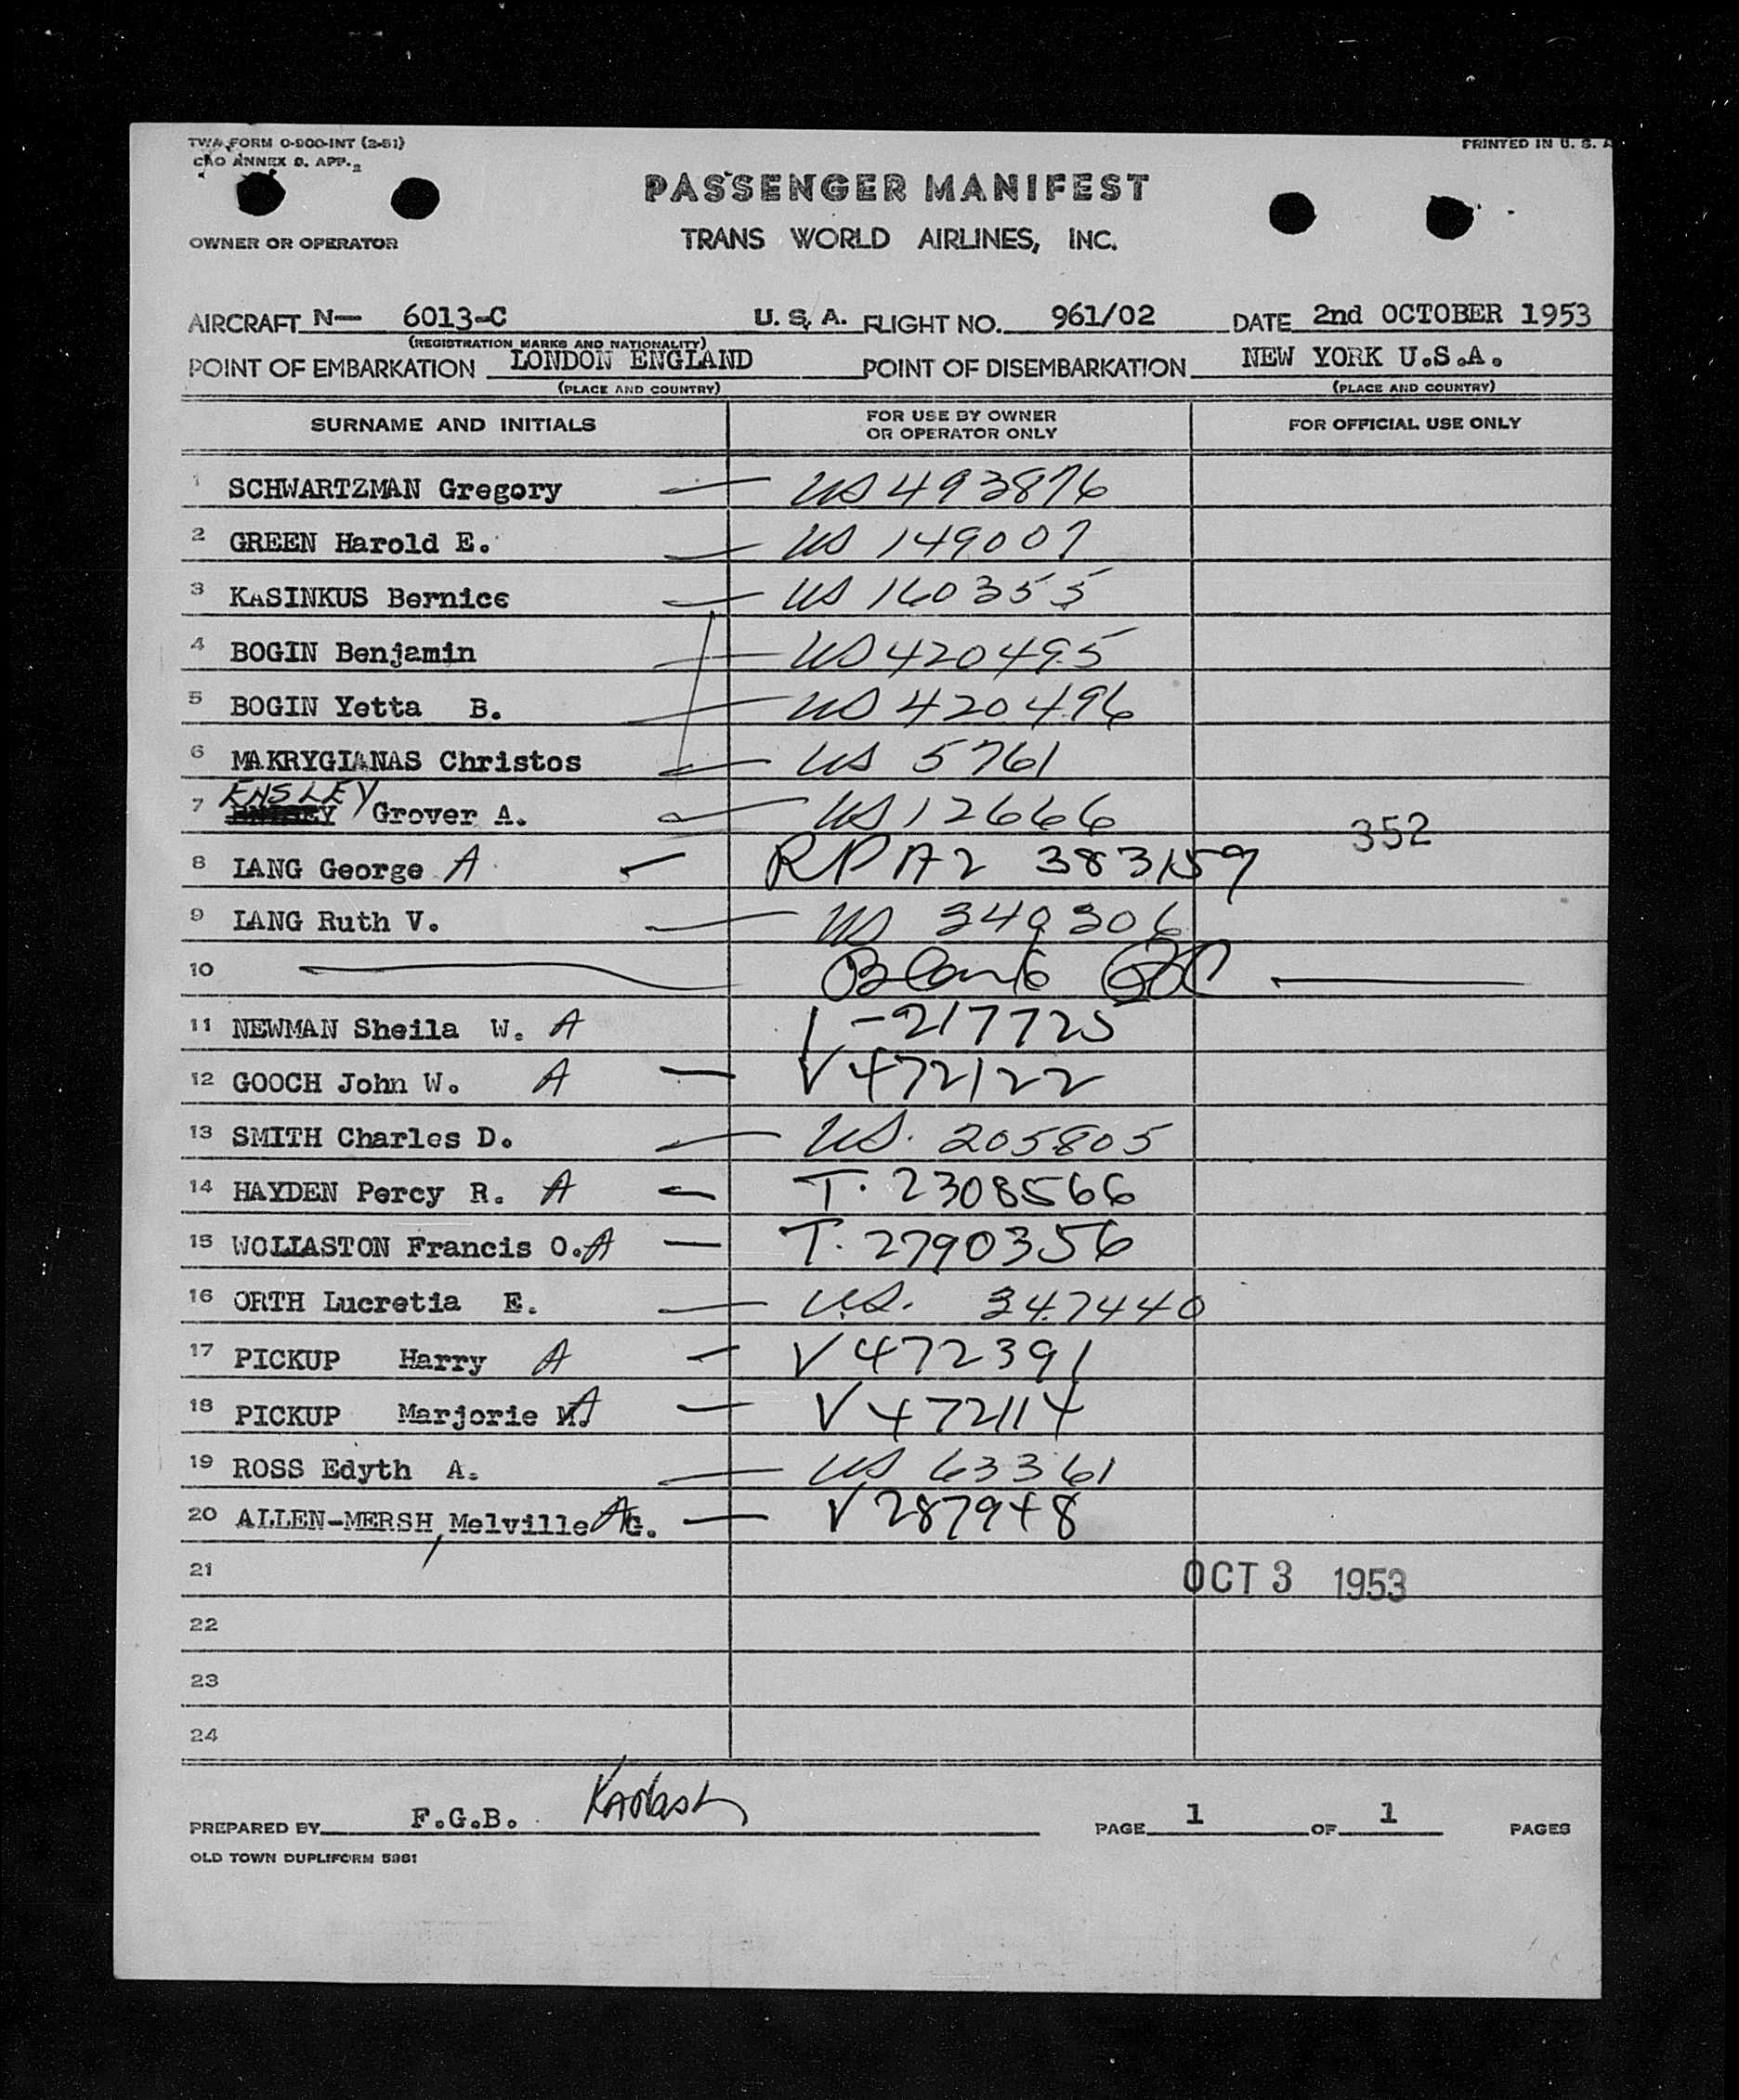 TWA FORM O-900-INT (2-51)
PRINTED IN U. S. A
CAO ANNEX 9. APP. 2
PASSENGER MANIFEST
OWNER OR OPERATOR
TRANS WORLD AIRLINES, INC.
AIRCRAFT N— 6013-C U. S. A. FLIGHT NO. 961/02 DATE 2nd OCTOBER 1953
(REGISTRATION MARKS AND NATIONALITY)
POINT OF EMBARKATION LONDON ENGLAND POINT OF DISEMBARKATION NEW YORK U.S.A.
(PLACE AND COUNTRY) (PLACE AND COUNTRY)
SURNAME AND INITIALS FOR USE BY OWNER OR OPERATOR ONLY FOR OFFICIAL USE ONLY
1 SCHWARTZMAN Gregory — US 493876
2 GREEN Harold E. — US 149007
3 KASINKUS Bernice — US 160355
4 BOGIN Benjamin — US 420495
5 BOGIN Yetta B. — US 420496
6 MAKRYGIANAS Christos — US 5761
7 ENSLEY Grover A. — US 12666 352
8 LANG George A — RP A2 383159
9 LANG Ruth V. — US 340306
10 — Blank —
11 NEWMAN Sheila W. A -217725
12 GOOCH John W. A — V 472122
13 SMITH Charles D. — US. 205805
14 HAYDEN Percy R. A — T. 2308566
15 WOLLASTON Francis O. A — T. 2790356
16 ORTH Lucretia E. — U.S. 347440
17 PICKUP Harry A — V 472391
18 PICKUP Marjorie M. A — V 472114
19 ROSS Edyth A. — US 63361
20 ALLEN-MERSH, Melville A G. — V 287948
21 OCT 3 1953
22
23
24
PREPARED BY F.G.B. PAGE 1 OF 1 PAGES
OLD TOWN DUPLIFORM 5981